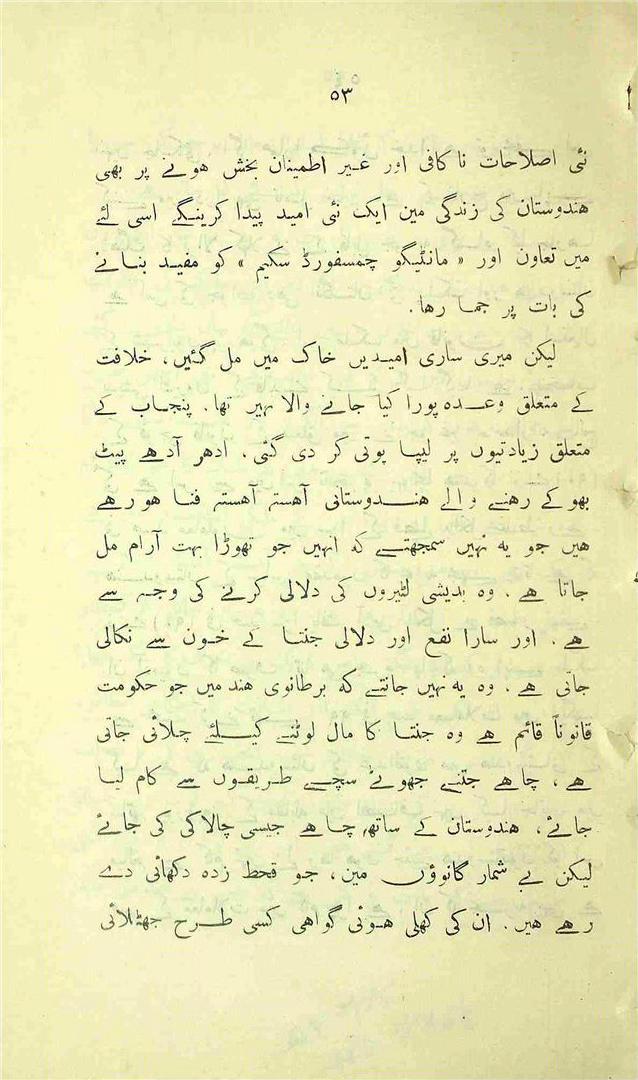 ۵۳
نئی اصلاحات ناکافی اور غیر اطمینان بخش ہونے پر بھی
ہندوستان کی زندگی مین ایک نئی امید پیدا کرینگے اسی لئے
میں تعاون اور « مانٹیگو چمسفورڈ سکیم » کو مفید بنانے
کی بات پر جما رہا.
لیکن میری ساری امیدیں خاک میں مل گئیں، خلافت
کے متعلق وعدہ پورا کیا جانے والا نہیر تھا. پنجاب کے
متعلق زیادتیوں پر لیپا پوتی کر دی گئی. ادھر آدھے پیٹ
بھوکے رہنے والے ہندوستانی آہستہ آہستہ فنا ہو رہے
ہیں جو یہ نہیں سمجھتے کہ انہیں جو تھوڑا بہت آرام مل
جاتا ہے. وہ بدیشی لٹیروں کی دلالی کرنے کی وجہ سے
ہے. اور سارا نفع اور دلالی جنتا کے خون سے نکالی
جاتی ہے. وہ یہ نہیں جانتے کہ برطانوی ہند میں جو حکومت
قانوناً قائم ہے وہ جنتا کا مال لوٹنے کیلئے چلائی جاتی
ہے، چاہے جتنے جھوٹے سچے طریقوں سے کام لیا
جائے، ہندوستان کے ساتھ چاہے جیسی چالاکی کی جائے
لیکن بے شمار گانوؤں مین، جو قحط زدہ دکھائی دے
رہے ہیں. ان کی کھلی ہوئی گواہی کسی طرح جھٹلائی